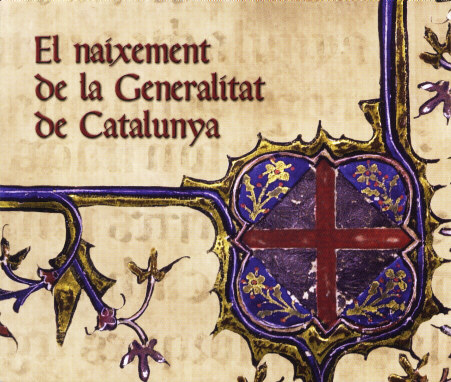 El naixement
de la Generalitat
de Catalunya